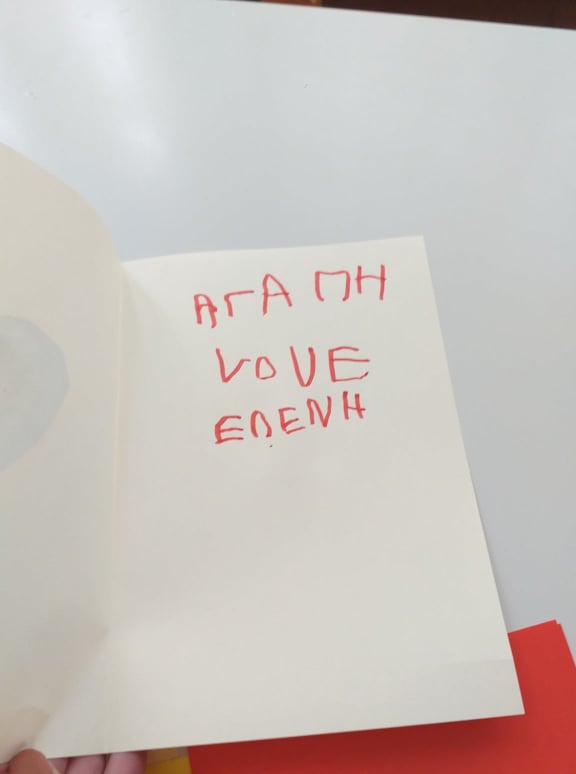 ΑΓΑΠΗ
LOVE
ΕΛΕΝΗ